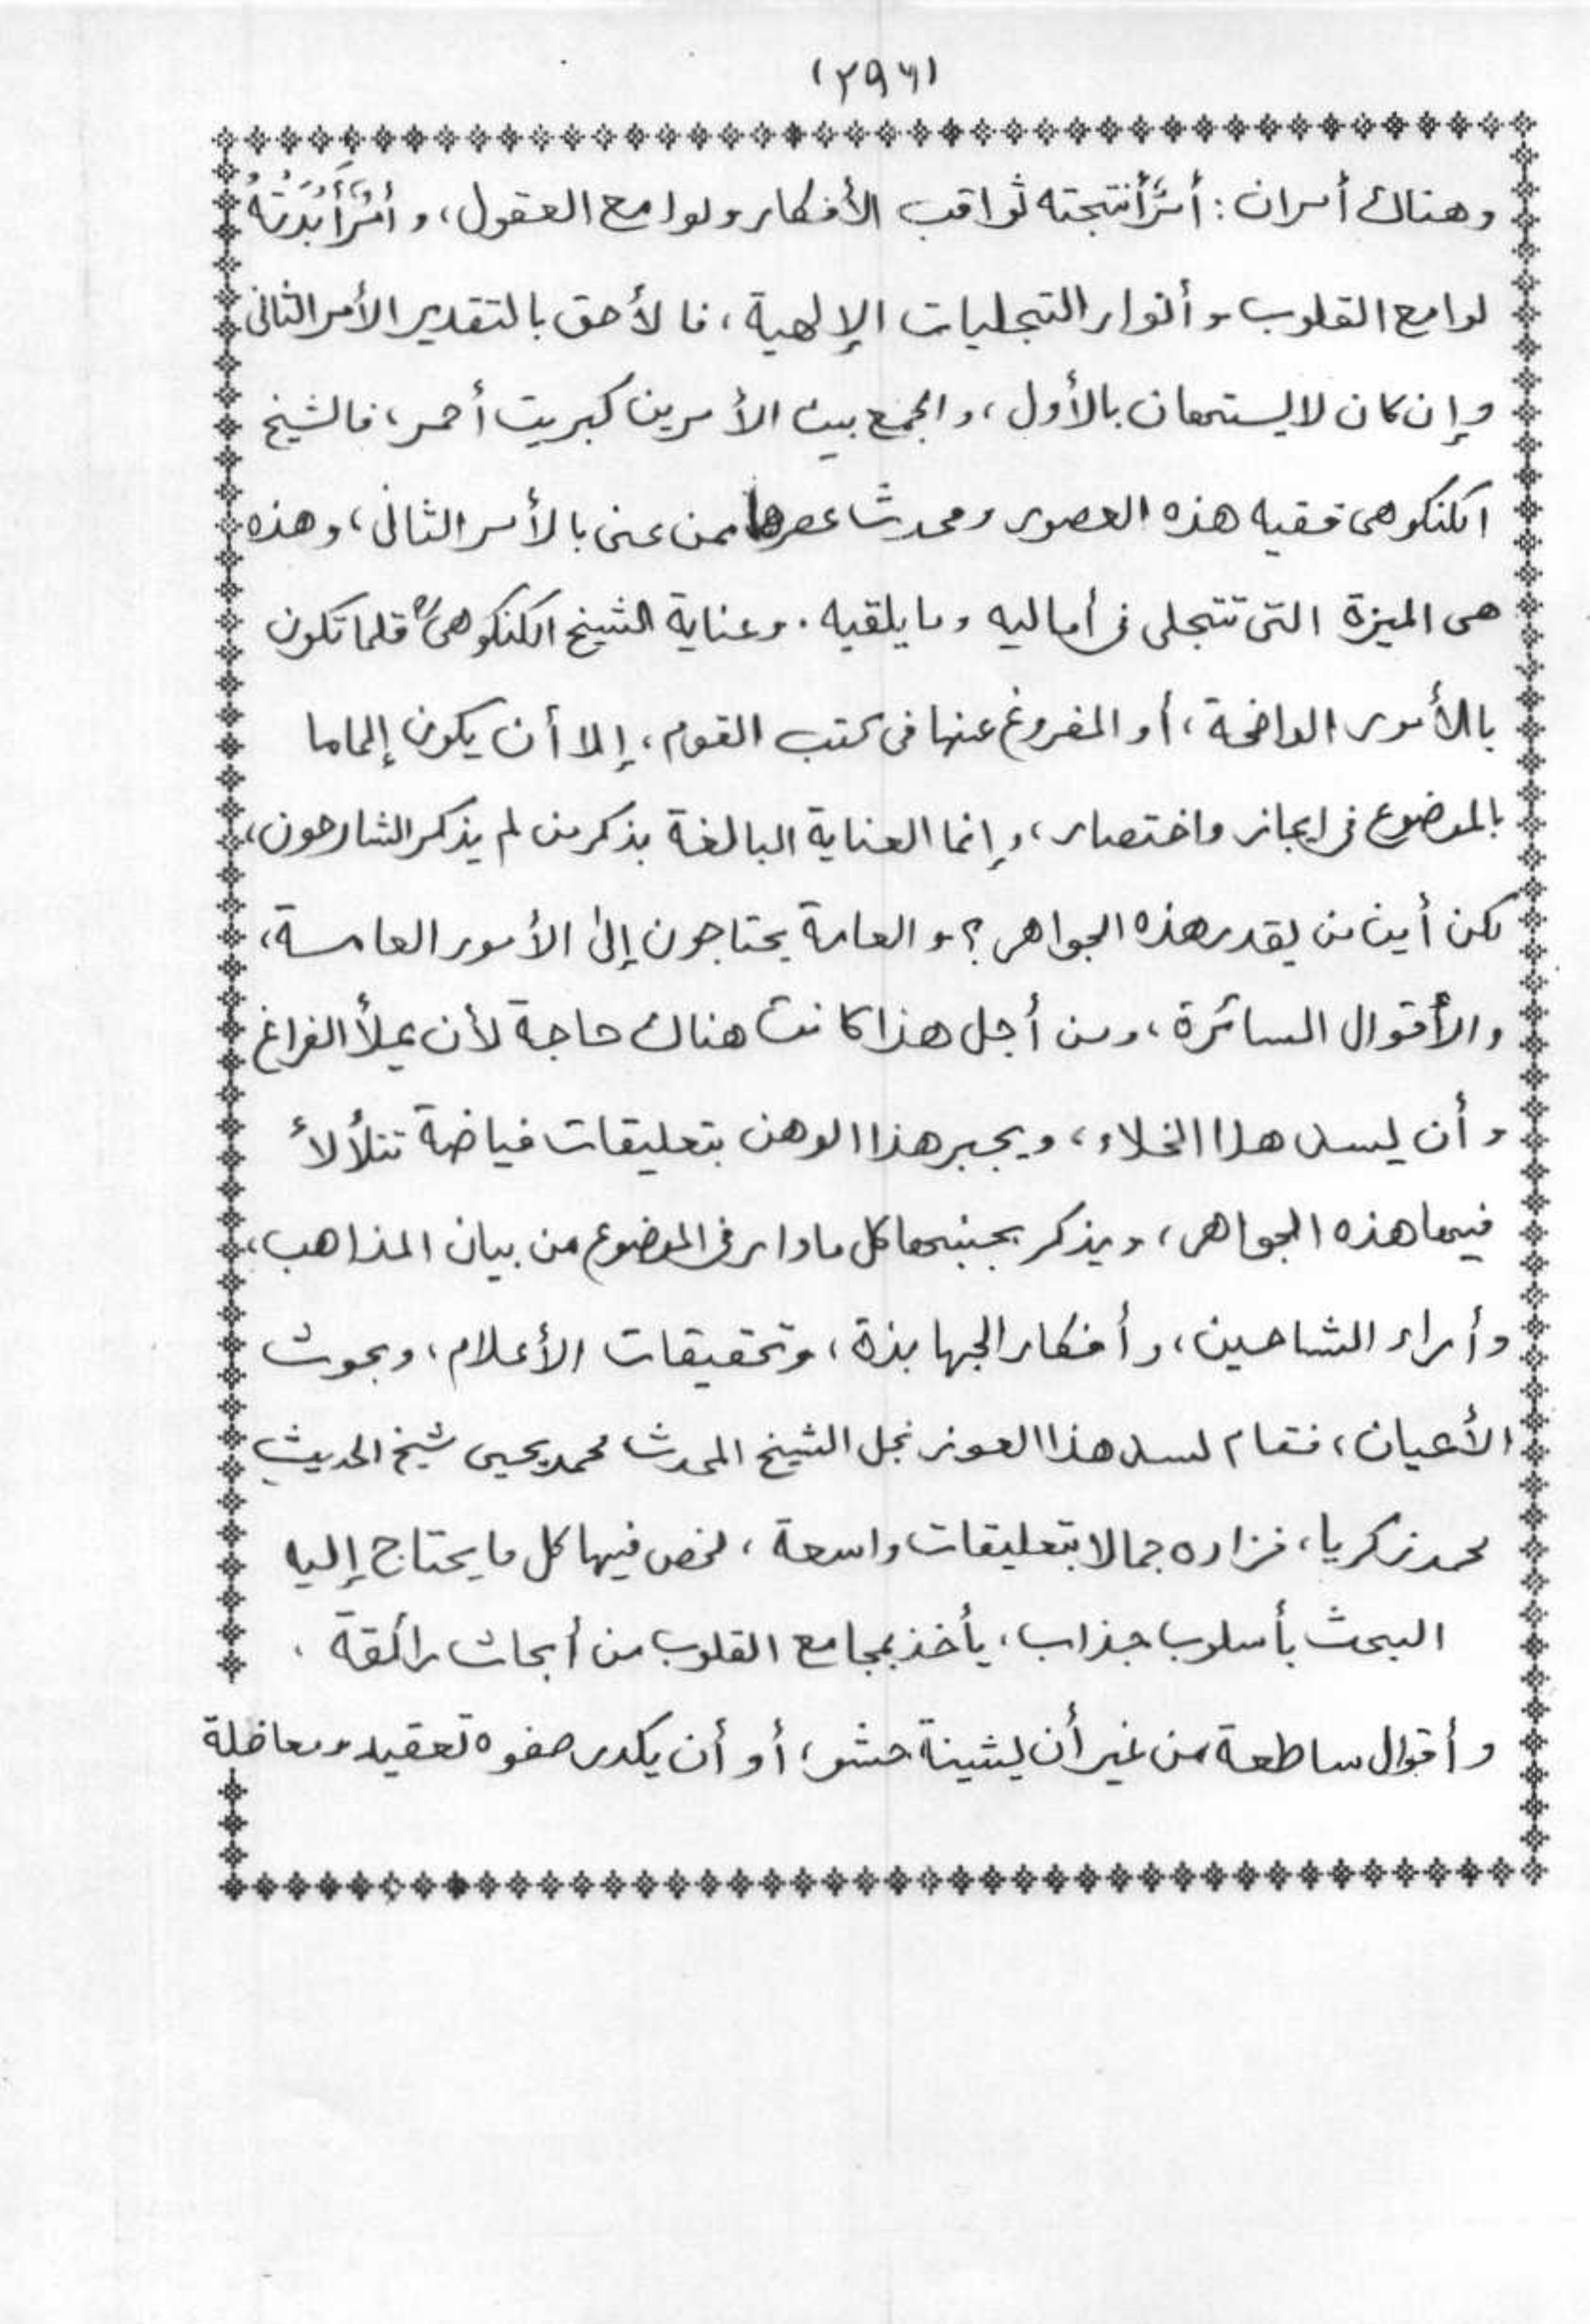 (٢٩٦)
وهناك أمران: أمرٌ أنتجته ثواقب الأفكار ولوامع العقول، وأمرٌ أَبْدَتْهُ
لوامع القلوب وأنوار التجليات الإلهية، فالأحق بالتقدير الأمر الثانى
وإن كان لا يستهان بالأول، والجمع بين الأمرين كبريت أحمر، فالشيخ
الكنكوهى فقيه هذه العصور ومحدث عصرها ممن عنى بالأمر الثانى، وهذه
هى الميزة التى تتجلى فى أماليه وما يلقيه. وعناية الشيخ الكنكوهىؒ قلما تكون
بالأمور الواضحة، أو المفروغ عنها فى كتب القوم، إلا أن يكون إلماما
بالموضوع فى إيجاز واختصار، وإنما العناية البالغة بذكر من لم يذكر الشارحون،
لكن أين من يقدر هذه الجواهر؟ والعامة يحتاجون إلى الأمور العامة،
والأقوال السائرة، ومن أجل هذا كانت هناك حاجة لأن يملأ الفراغ
وأن يسد هذا الخلاء، ويجبر هذا الوهن بتعليقات فياضة تتلألأ
فيها هذه الجواهر، ويذكر بجنبها كل ما دار فى الموضوع من بيان المذاهب،
وأراء الشاحين، وأفكار الجهابذة، وتحقيقات الأعلام، وبحوث
الأعيان، فقام لسد هذا العوز نجل الشيخ المحدث محمد يحيى شيخ الحديث
محمد زكريا، فزاده جمالا بتعليقات واسعة، لخص فيها كل ما يحتاج إليه
البحث بأسلوب جذاب، يأخذ بمجامع القلوب من أبحاث رائقة.
وأقوال ساطعة من غير أن يشينة حشو، أو أن يكدر صفوه تعقيد ومعاظلة